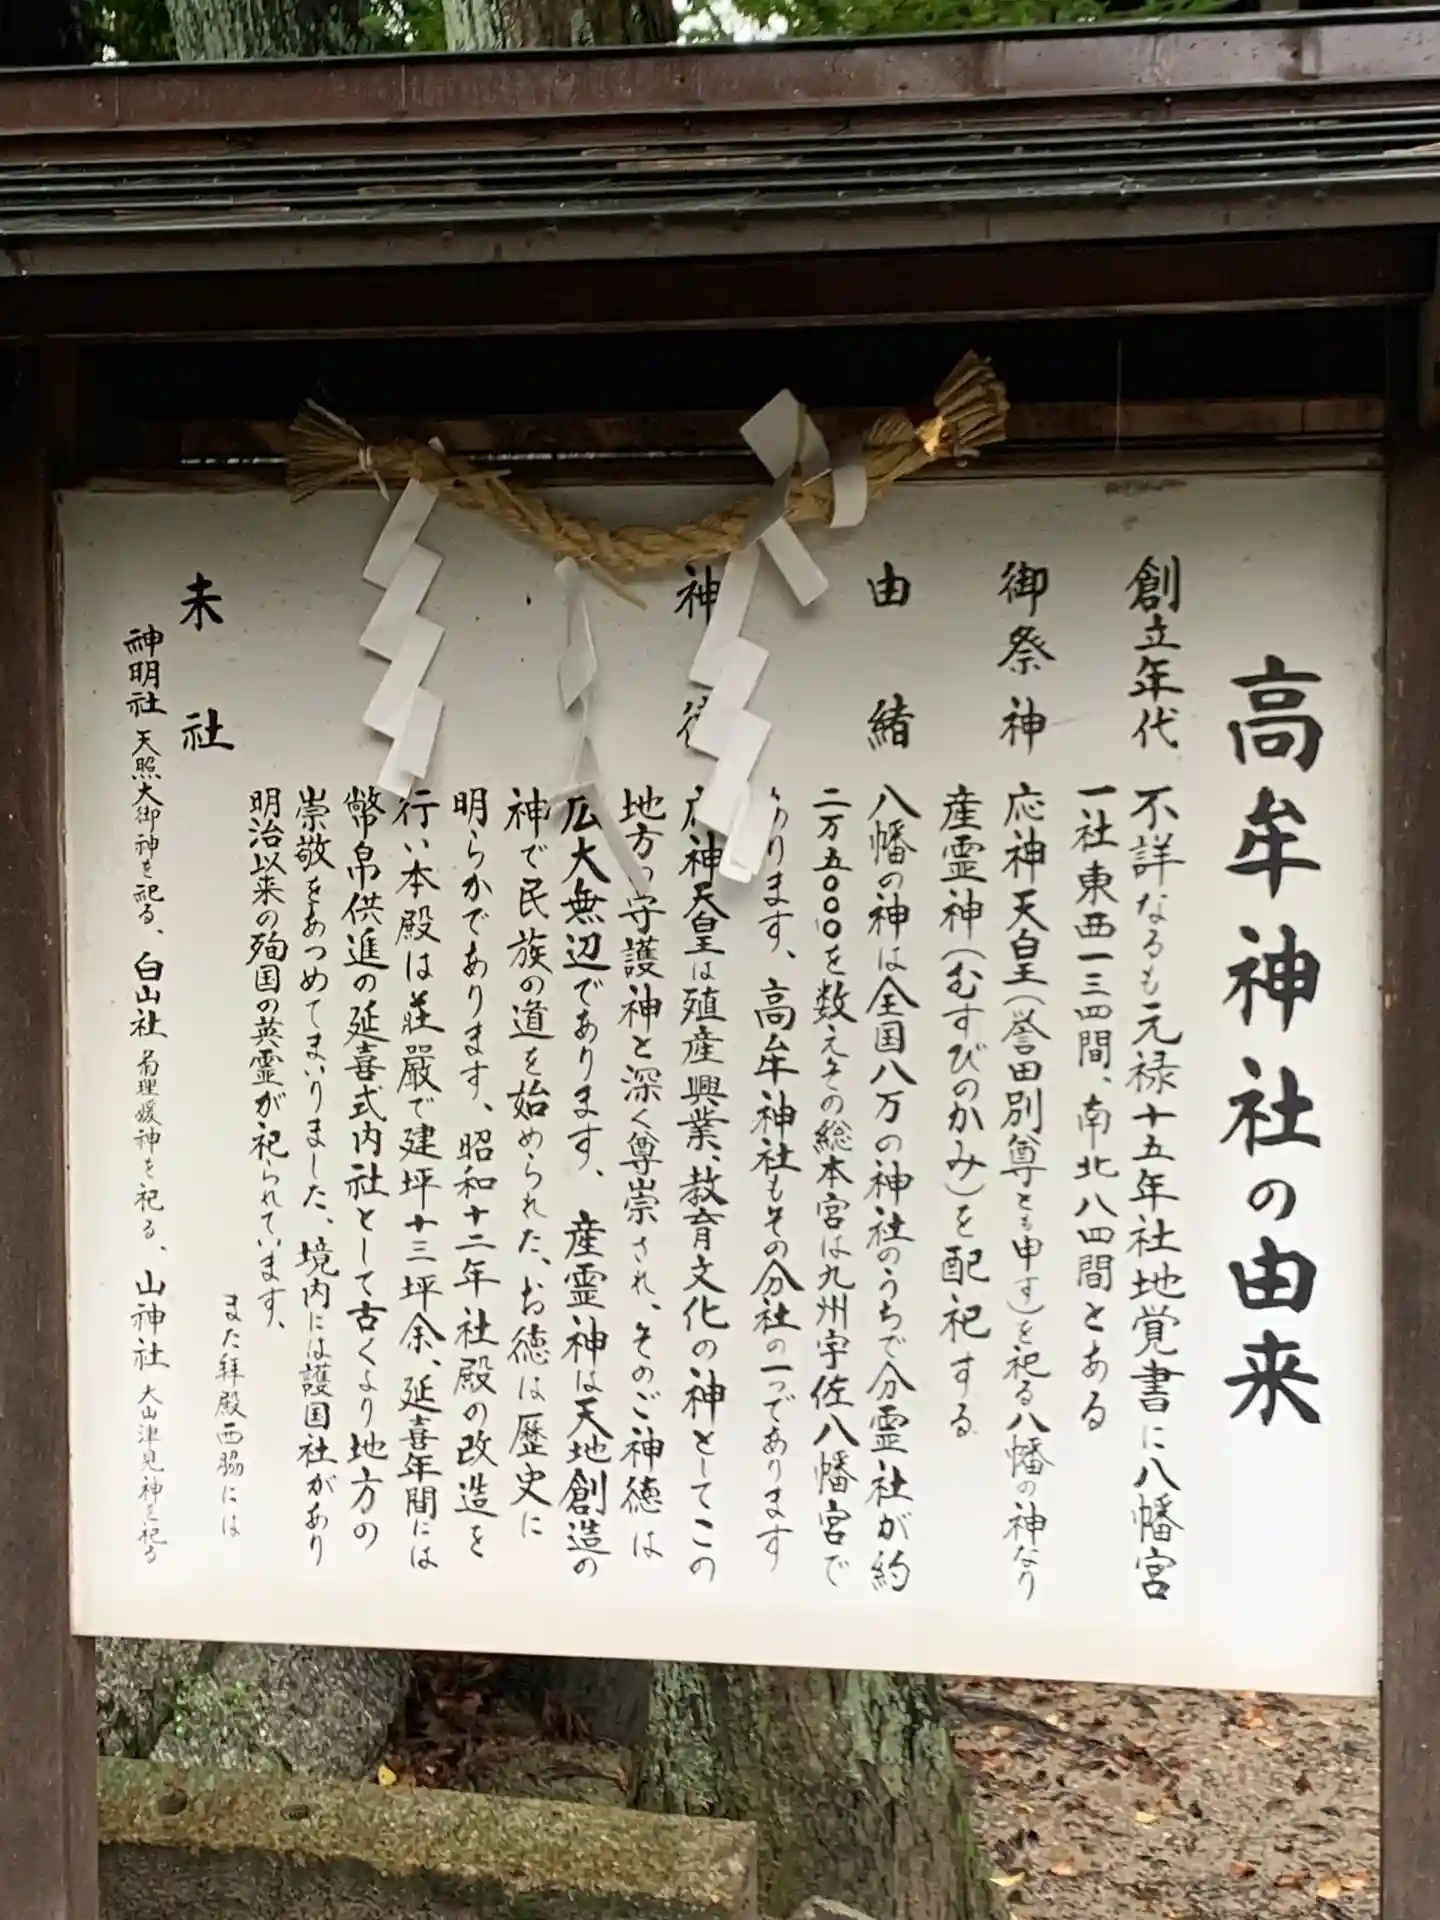 高牟神社の由来
創立年代 不詳なるも元禄十五年社地覚書に八幡宮
一社東西一三四間、南北八四間とある
御祭神 応神天皇(誉田別尊とも申す)を祀る八幡の神なり
産霊神(むすびのかみ)を配祀する
由緒 八幡の神は全国八万の神社のうちで分霊社が約
二万五〇〇〇を数えその総本宮は九州宇佐八幡宮で
あります、高牟神社もその分社の一つであります
神徳 応神天皇は殖産興業、教育文化の神としてこの
地方の守護神と深く尊崇され、そのご神徳は
広大無辺であります、産霊神は天地創造の
神で民族の道を始められた、お徳は歴史に
明らかであります、昭和十二年社殿の改造を
行い本殿は荘厳で建坪十三坪余、延喜年間には
幣帛供進の延喜式内社として古くより地方の
崇敬をあつめてまいりました、境内には護国社があり
明治以来の殉国の英霊が祀られています、
また拝殿西脇には
末社
神明社 天照大御神を祀る、白山社 菊理媛神を祀る、山神社 大山津見神を祀る